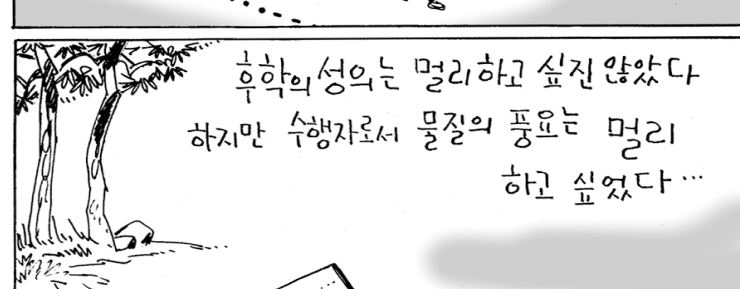 후학의 성의는 멀리하고 싶진 않았다
하지만 수행자로서 물질의 풍요는 멀리
하고 싶었다…